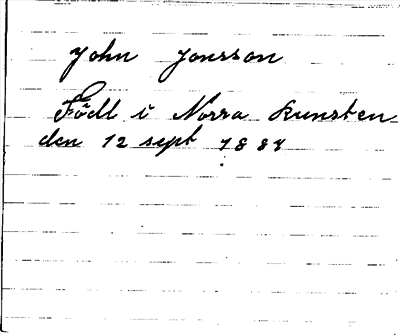 John Jonsson
Född i Norra Runsten
den 12 sept 1884